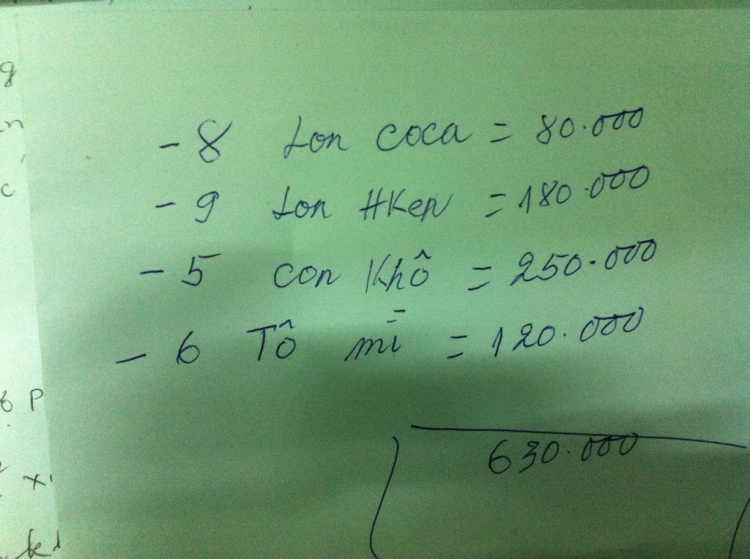 - 8 lon coca = 80.000
- 9 lon HKen = 180.000
- 5 con Khô = 250.000
- 6 Tô mì = 120.000
630.000